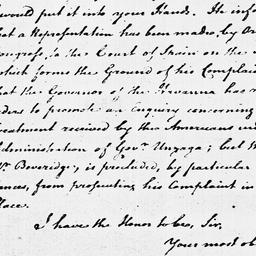 would put it into your Hands. He info
at a Representation has been made, by Or
ongress, to the Court of Spain on the
which forms the Ground of his Complai
at the Governor of the Havanna has r
ders to promote an Enquiry concerning
reatment received by the Americans und
dministration of Govr. Unzaga; but
Mr. Beveridge, is precluded, by particular
ences, from prosecuting his Complaint in
lace.
I have the Honor to be, Sir,
Your most ob